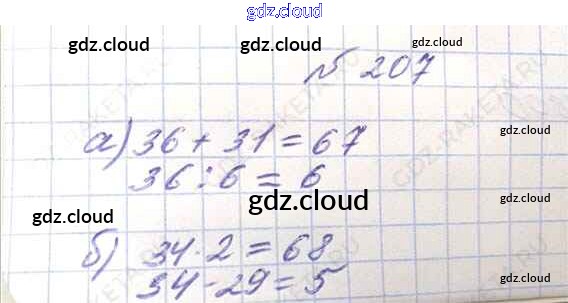 gdz.cloud
gdz.cloud gdz.cloud gdz.cloud
№ 207
gdz.cloud
а) 36 + 31 = 67
gdz.cloud
36 : 6 = 6
gdz.cloud
gdz.cloud
б) 34 · 2 = 68
34 - 29 = 5
gdz.cloud